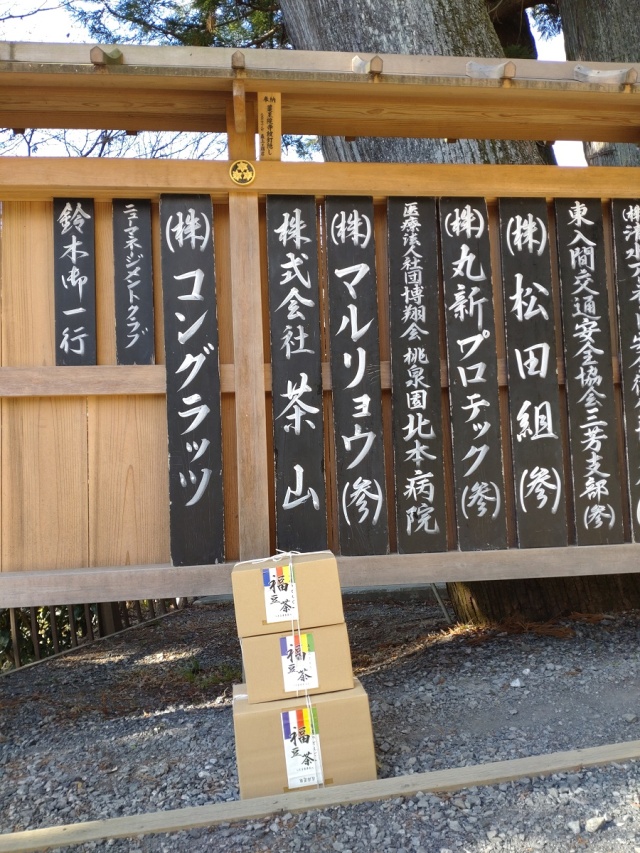 (株)清水
東入間交通安全協会三芳支部(参)
(株)松田組(参)
(株)丸新プロテック(参)
医療法人社団博翔会 桃泉園北本病院
(株)マルリョウ(参)
株式会社 茶山
(株)コングラッツ
ニューマネージメントクラブ
鈴木御一行
奉納
福豆茶
福豆茶
福豆茶